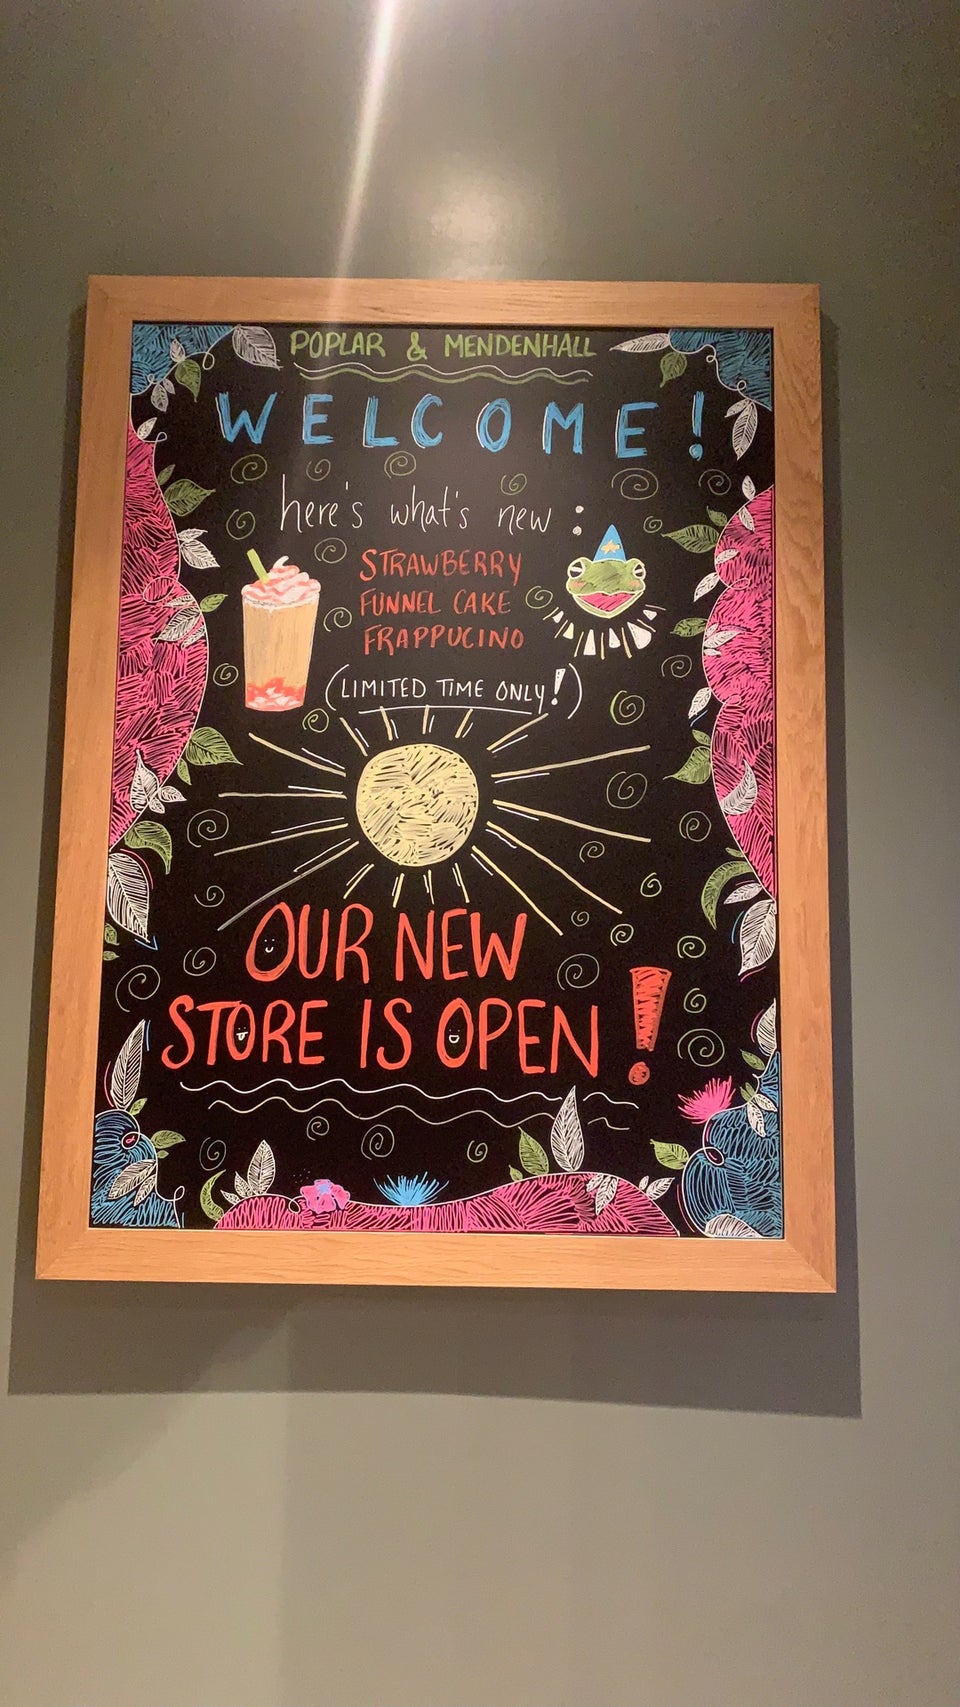 POPLAR & MENDENHALL
WELCOME!
here's what's new :
STRAWBERRY
FUNNEL CAKE
FRAPPUCINO
(LIMITED TIME ONLY!)
OUR NEW
STORE IS OPEN!